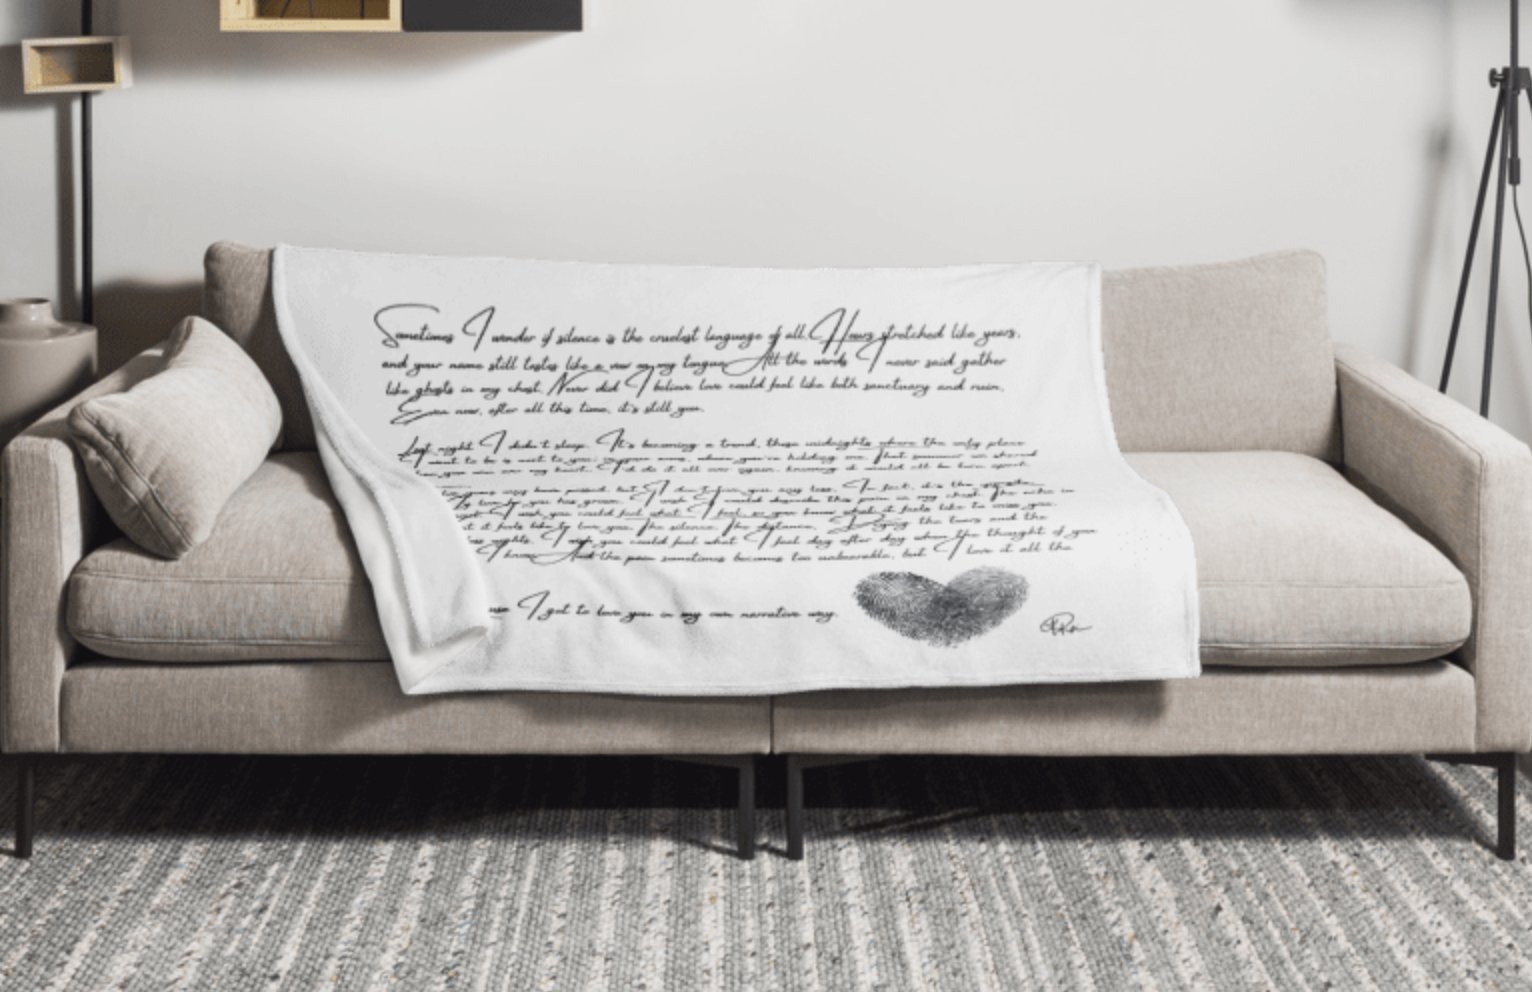 Sometimes I wonder if silence is the cruelest language of all. Hours stretched like years,
and your name still tastes like a vow on my tongue. All the words I never said gather
like ghosts in my chest. Never did I believe love could feel like both sanctuary and ruin.
Even now, after all this time, it's still you.
Last night I didn't sleep. It's becoming a trend, these midnights where the only place
I want to be is next to you; in your arms, where you're holding me. That summer we shared
when you won over my heart. I'd do it all over again, knowing it would all be torn apart.
years may have passed, but I don't love you any less. In fact, it's the opposite.
My love for you has grown. I wish I could describe this pain in my chest. The ache in
I wish you could feel what I feel, so you know what it feels like to miss you.
it feels like to love you. The silence. The distance. the tears and the
nights. I wish you could feel what I feel day after day when the thought of you
I know. And the pain sometimes becomes too unbearable, but I love it all the
I got to love you in my own narrative way.